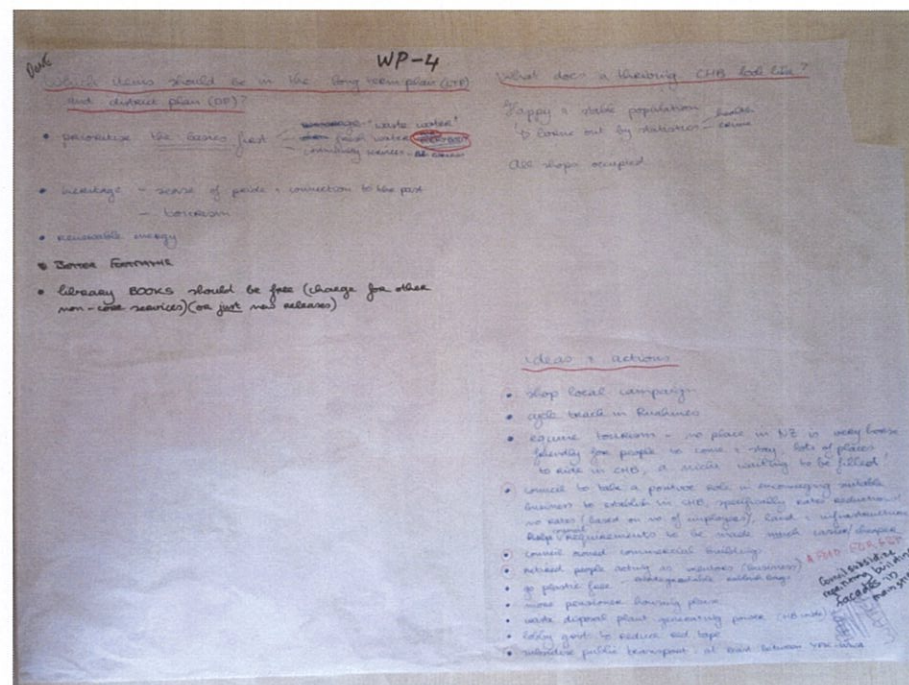 WP-4
Which items should be in the long term plan (LTP)
and district plan (DP)?
• prioritise the basics first
"waste water"
food water
• heritage - sense of pride + connection to the past
- tourism
• renewable energy
• BETTER FOOTPATHS
• library BOOKS should be free (charge for other
non-core services) (or just new releases)
What does a thriving CHB look like?
Happy + stable population
borne out by statistics - health
crime
All shops occupied
ideas + actions
• shop local campaign
• cycle track in Ruahines
• equine tourism - no place in NZ is very horse
friendly for people to come + stay, lots of places
to ride in CHB, a niche waiting to be filled!
• council to take a positive role in encouraging suitable
business to establish in CHB, specifically rates reductions/
no rates (based on no. of employees), land + infrastructure
requirements to be made much easier/cheaper
• council owned commercial buildings
• retired people acting as mentors (business)
• go plastic free - biodegradable
• more pensioner housing
• waste disposal plant generating power
• lobby govt to reduce red tape
• subsidise public transport - at least between
Council subsidise
repainting building
facades in
main st